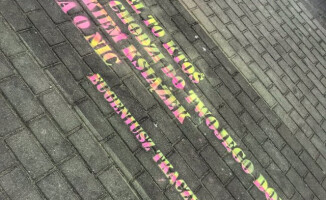 TO KTOŚ
CHODZI DO TWOJEGO DO
KIEM KSIĄŻEK
A O NIC
EUGENIUSZ TKACZ